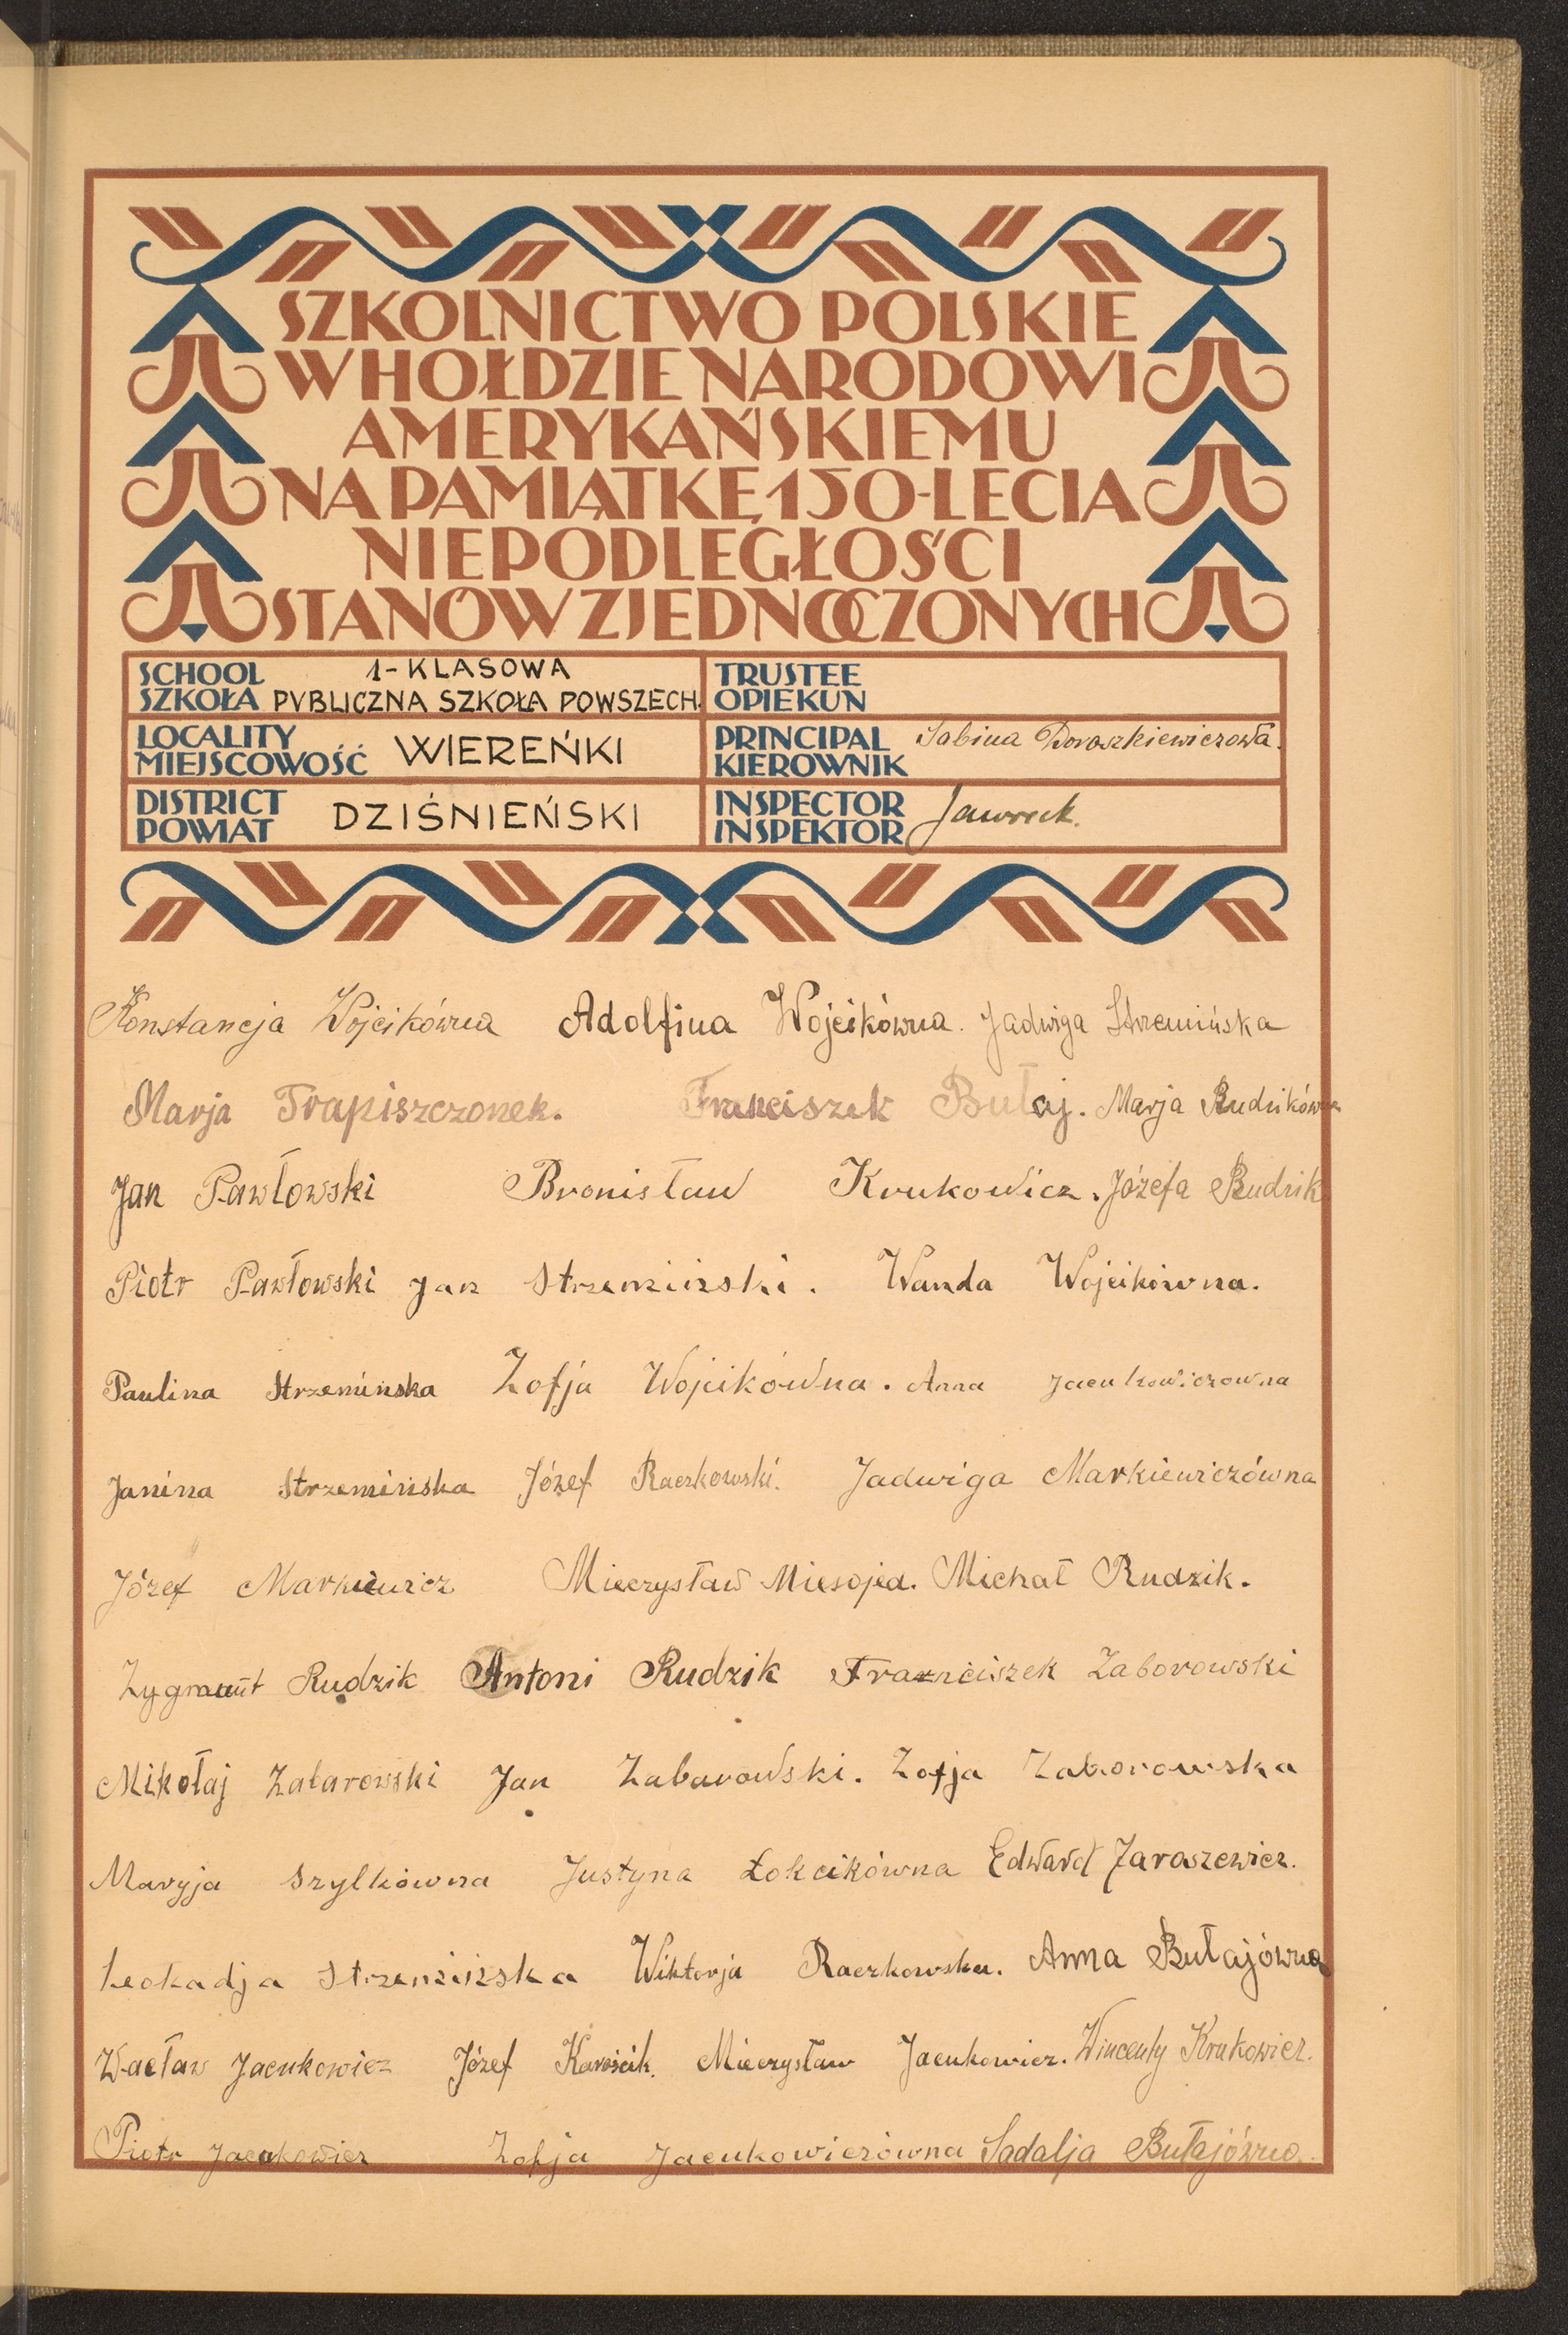 SZKOLNICTWO POLSKIE
W HOŁDZIE NARODOWI
AMERYKAŃSKIEMU
NA PAMIĄTKĘ 150-LECIA
NIEPODLEGŁOŚCI
STANÓW ZJEDNOCZONYCH
SCHOOL SZKOŁA 1-KLASOWA PVBLICZNA SZKOŁA POWSZECH.
TRUSTEE OPIEKUN
LOCALITY MIEJSCOWOŚĆ WIEREŃKI
PRINCIPAL KIEROWNIK Sabina Doroszkiewiczowa.
DISTRICT POWIAT DZIŚNIEŃSKI
INSPECTOR INSPEKTOR
Konstancja Wojcikówna Adolfina Wojcikówna. Jadwiga Strzemińska
Marja Trapiszczonek. Franciszek Bułaj. Marja Rudzikówna
Jan Pawłowski Bronisław Krukowicz. Józefa Rudzik
Piotr Pawłowski Jan Strzemiński. Wanda Wojcikówna.
Paulina Strzemińska Zofja Wojcikówna. Anna Jacukowiczowna
Janina Strzemińska Józef Raczkowski. Jadwiga Markiewiczówna
Józef Markiewicz Mieczysław Miesojed. Michał Rudzik.
Zygmunt Rudzik Antoni Rudzik Franciszek Zaborowski
Mikołaj Zabarowski Jan Zabarowski. Zofja Zaborowska
Maryja Szylkówna Justyna Łokcikówna Edward Jaroszewicz.
Leokadja Strzemińska Wiktorja Raczkowska. Anna Bułajówna
Wacław Jacukowicz Józef Mieczysław Jacukowicz. Wincenty Krukowicz.
Piotr Jacukowicz Zofja Jacukowiczówna Sadalja Bułajówna.